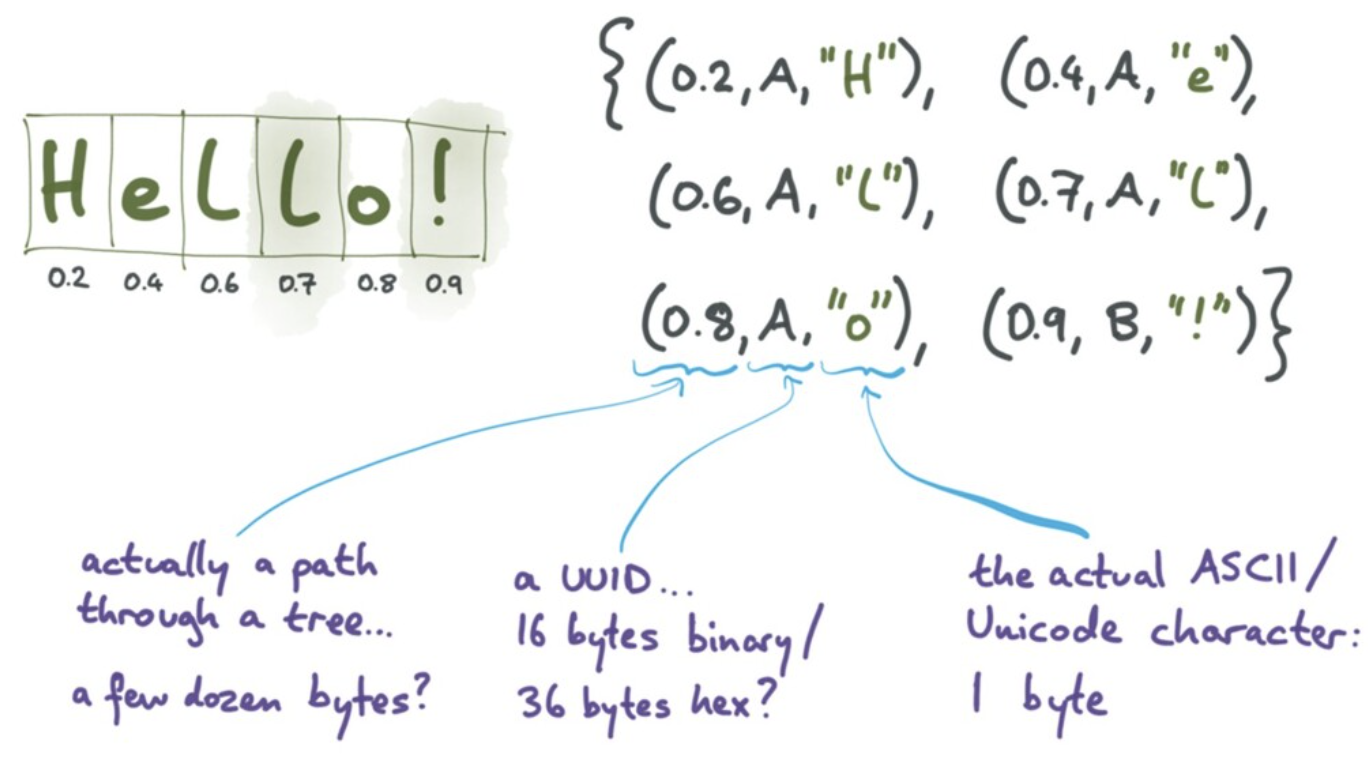 Hello!
0.2 0.4 0.6 0.7 0.8 0.9
{(0.2, A, "H"), (0.4, A, "e"),
(0.6, A, "l"), (0.7, A, "l"),
(0.8, A, "o"), (0.9, B, "!")}
actually a path
through a tree...
a few dozen bytes?
a UUID...
16 bytes binary/
36 bytes hex?
the actual ASCII/
Unicode character:
1 byte